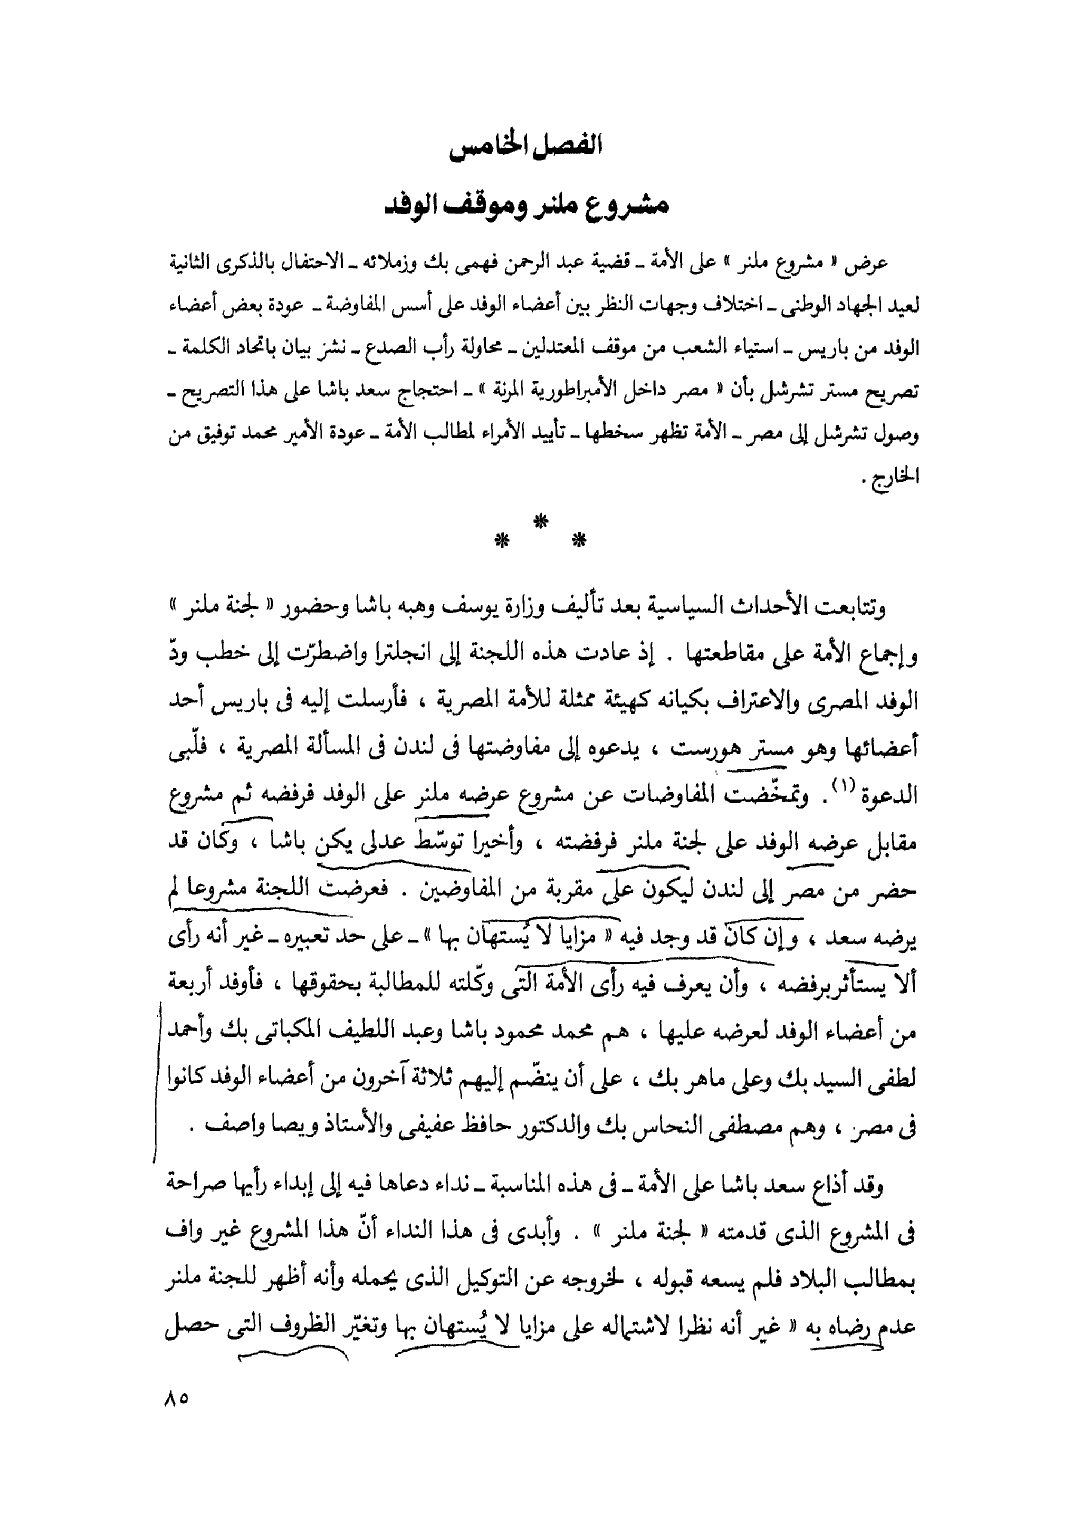 الفصل الخامس
مشروع ملنر وموقف الوفد
عرض « مشروع ملنر » على الأمة ـ قضية عبد الرحمن فهمى بك وزملائه ـ الاحتفال بالذكرى الثانية
لعيد الجهاد الوطنى ـ اختلاف وجهات النظر بين أعضاء الوفد على أسس المفاوضة ـ عودة بعض أعضاء
الوفد من باريس ـ استياء الشعب من موقف المعتدلين ـ محاولة رأب الصدع ـ نشر بيان باتحاد الكلمة ـ
تصريح مستر تشرشل بأن « مصر داخل الأمبراطورية المرنة » ـ احتجاج سعد باشا على هذا التصريح ـ
وصول تشرشل إلى مصر ـ الأمة تظهر سخطها ـ تأييد الأمراء لمطالب الأمة ـ عودة الأمير محمد توفيق من
الخارج .
* * *
وتتابعت الأحداث السياسية بعد تأليف وزارة يوسف وهبه باشا وحضور « لجنة ملنر »
وإجماع الأمة على مقاطعتها . إذ عادت هذه اللجنة إلى انجلترا واضطرّت إلى خطب ودّ
الوفد المصرى والاعتراف بكيانه كهيئة ممثلة للأمة المصرية ، فأرسلت إليه فى باريس أحد
أعضائها وهو مستر هورست ، يدعوه إلى مفاوضتها فى لندن فى المسألة المصرية ، فلّبى
الدعوة (١). وتمخّضت المفاوضات عن مشروع عرضه ملنر على الوفد فرفضه ثم مشروع
مقابل عرضه الوفد على لجنة ملنر فرفضته ، وأخيرا توسّط عدلى يكن باشا ، وكان قد
حضر من مصر إلى لندن ليكون على مقربة من المفاوضين . فعرضت اللجنة مشروعا لم
يرضه سعد ، وإن كان قد وجد فيه « مزايا لا يُستهان بها » ـ على حد تعبيره ـ غير أنه رأى
ألا يستأثر برفضه ، وأن يعرف فيه رأى الأمة التى وكّلته للمطالبة بحقوقها ، فأوفد أربعة
من أعضاء الوفد لعرضه عليها ، هم محمد محمود باشا وعبد اللطيف المكباتى بك وأحمد
لطفى السيد بك وعلى ماهر بك ، على أن ينضّم إليهم ثلاثة آخرون من أعضاء الوفد كانوا
فى مصر ، وهم مصطفى النحاس بك والدكتور حافظ عفيفى والأستاذ ويصا واصف .
وقد أذاع سعد باشا على الأمة ـ فى هذه المناسبة ـ نداء دعاها فيه إلى إبداء رأيها صراحة
فى المشروع الذى قدمته « لجنة ملنر » . وأبدى فى هذا النداء أنّ هذا المشروع غير واف
بمطالب البلاد فلم يسعه قبوله ، لخروجه عن التوكيل الذى يحمله وأنه أظهر للجنة ملنر
عدم رضاه به « غير أنه نظرا لاشتماله على مزايا لا يُستهان بها وتغيّر الظروف التى حصل
٨٥